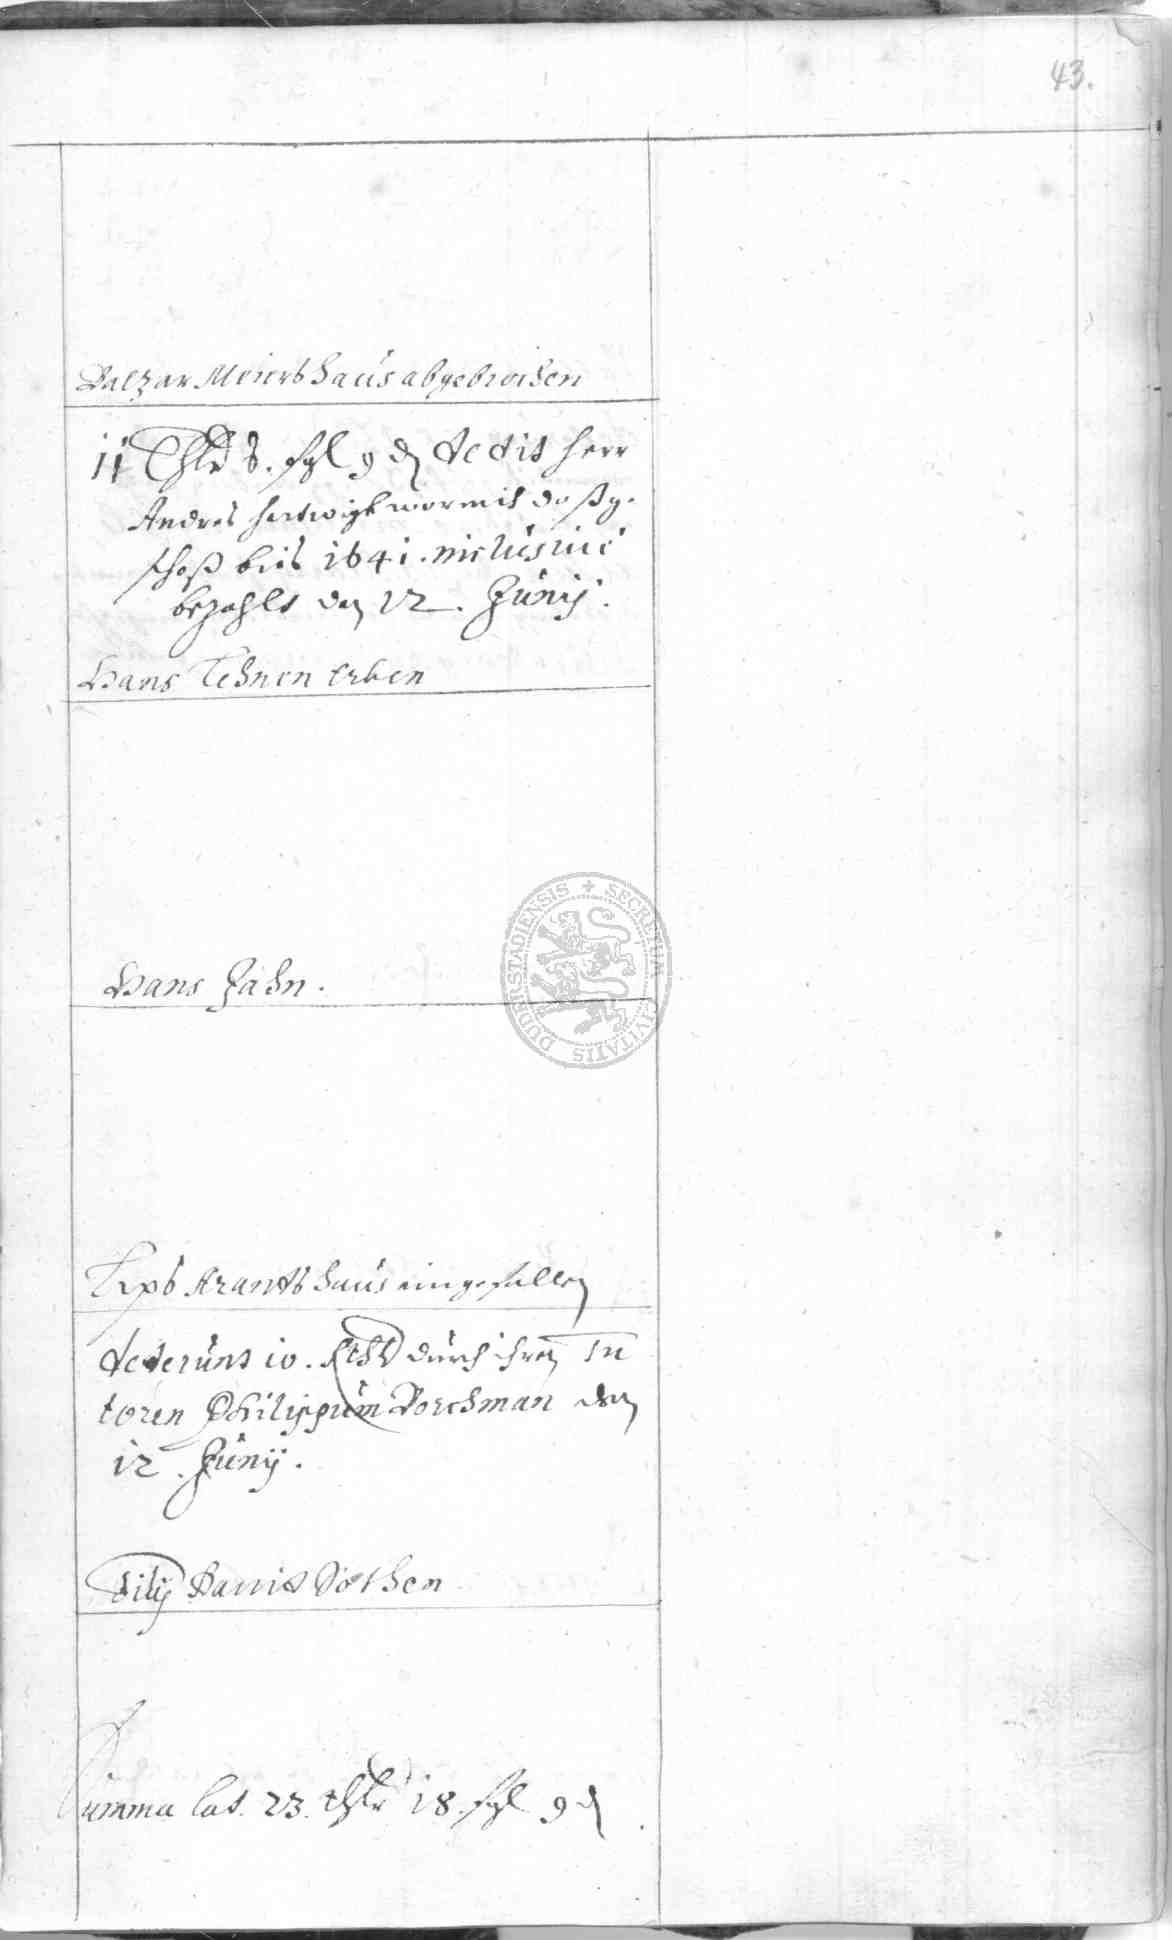 43.
Baltzar Meiers haus abgebrochen
11 Thlr 8. sgl 9 ₰ dedit herr
Andres hertwigk wormit daß ge-
schoß bis 1641. inclusive
bezahlt den 12. Junij.
Hans erben
Hans Jahn.
haus eingefallen
dederunt 10. durch ihren Tu
toren Philippum Borchman den
12. Junij.
filij David
Summa lat. 23. thlr 18 sgl 9 ₰
SECRETUM CIVITATIS DUDERSTADIENSIS